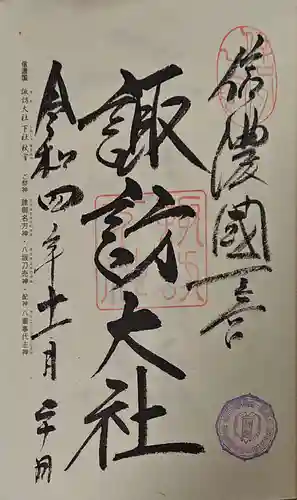 信濃國一宮
諏訪大社
令和四年十一月二十日
信濃國 諏訪大社下社秋宮 ご祭神 建御名方神・八坂刀売神・配神 八重事代主神